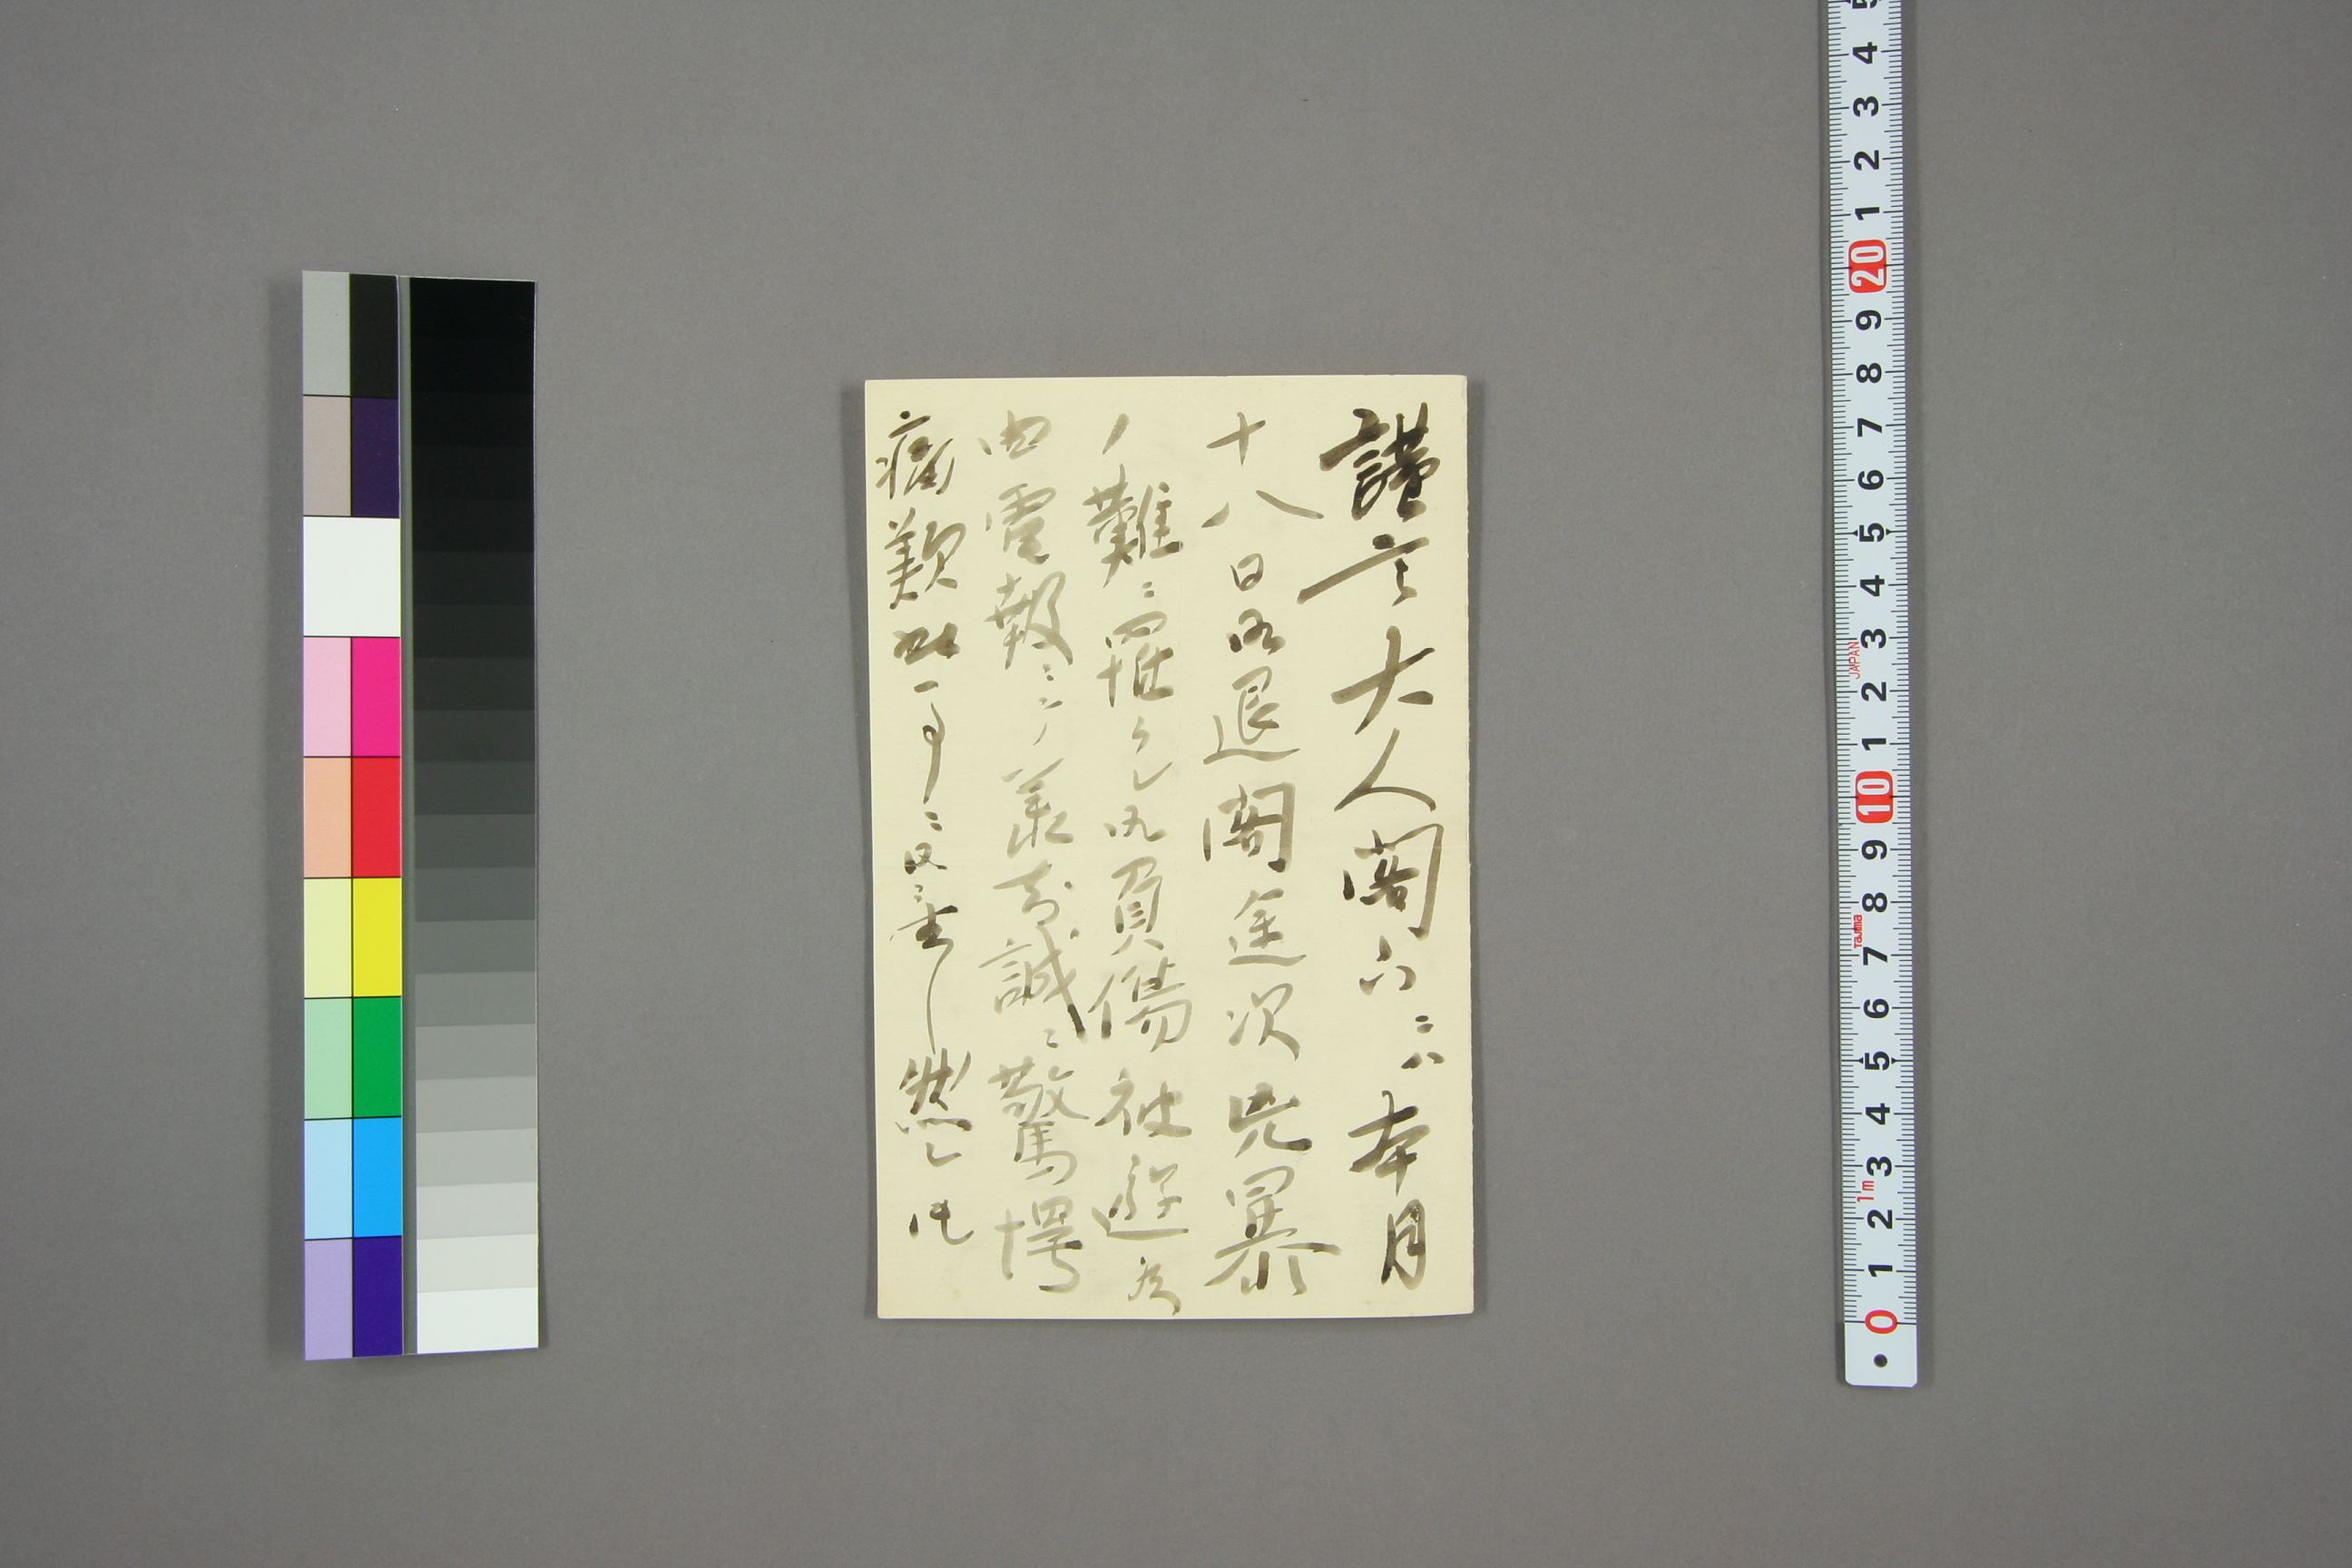 謹言大人閣下ニハ本月
十八日御退閣途次兇暴
ノ難ニ罹ラレ御負傷被遊候
由電報ニテ承知誠ニ驚愕
痛歎此一事ニ御坐候然レ𪜈
5 4 3 2 1 20 9 8 7 6 5 4 3 2 1 10 9 8 7 6 5 4 3 2 1 0
JAPAN
Tajima
1m